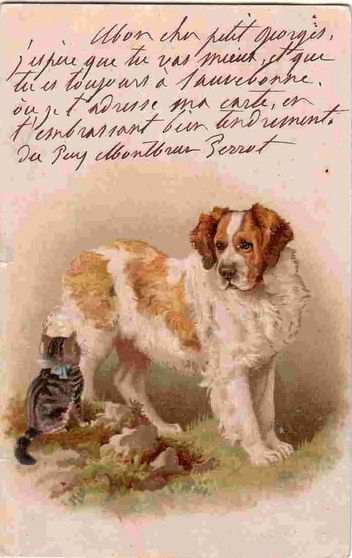 Mon cher petit georges,
j'espère que tu vas mieux, et que
tu es toujours à Sauvebonne.
où je t'adresse ma carte, en
t'embrassant bien tendrement.
du Puy Montbrun Perrot